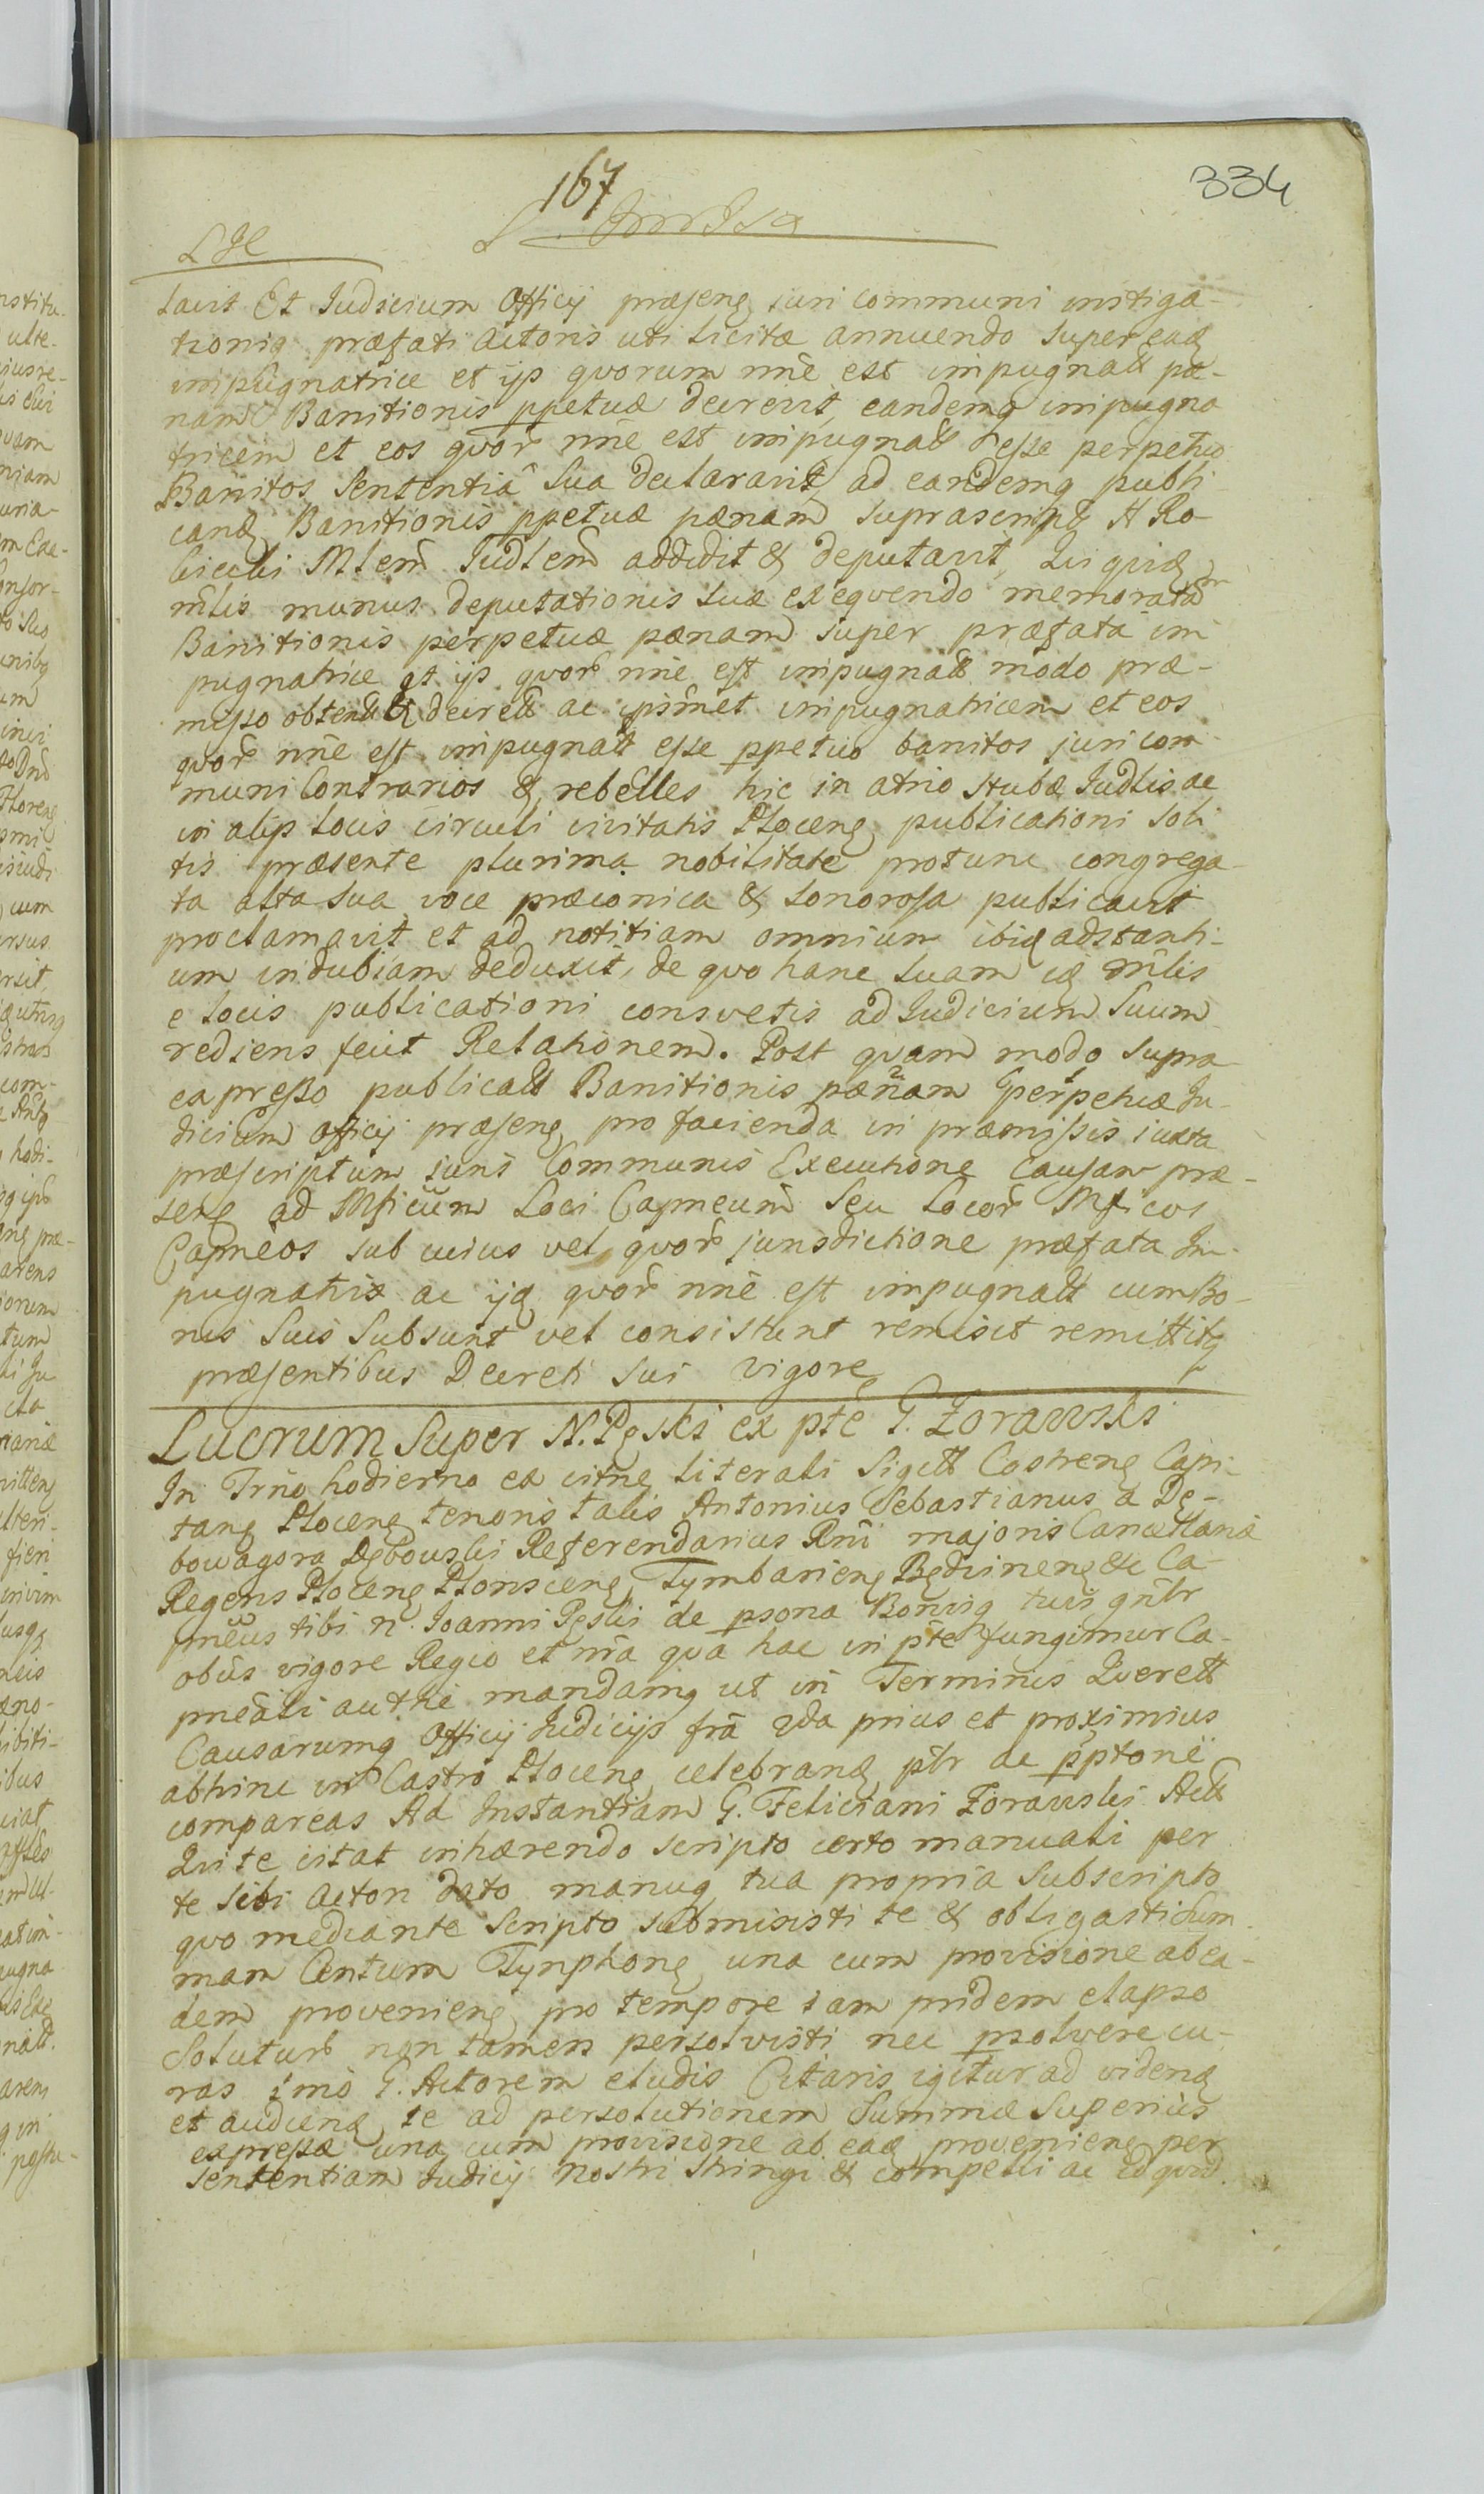 167
334
tavit Et Judicium Officij præsens juri communi instiga-
tioniq præfati Actoris uti licitæ annuendo super eadē
impugnatrice et ijs qvorum nne est impugnatt pæ-
nam Banitionis ppetuæ decrevit, eandemq impugna
tricem et eos qvor nne est impugnatt esse perpetuo
Banitos Sententiâ Sua declaravit, ad eandemq publi-
cand Banitionis ppetuæ pænam suprascript N Ro-
biecki Mlem Judlem addidit & deputavit, Qui quid
mlis munus deputationis suæ exeqvendo memoratam
Banitionis perpetuæ pænam super præfata im
pugnatrice et ijs qvor nne est impugnatt modo præ-
misso obtentt & decrett ac ipsmet impugnatricem et eos
qvor nne est impugnatt esse ppetuo banitos juri com-
muni Contrarios & rebelles hic in atrio stubæ Judlis ac
in alijs locis circuli civitatis Plocens publicationi soli
tis præsente plurima nobilitate protunc congrega-
ta alta sua voce præconica & sonorosa publicavit
proclamavit et ad notitiam omnium ibiq adstanti-
um indubiam deduxit, de qvo hanc suam iq mlis
e locis publicationi consvetis ad Judicium Suum
rediens fecit Relationem. Post qvam modo supra
expresso publicatt Banitionis pænam perpetuæ Ju-
dicium Officij præsens pro facienda in præmissis iuxta
præscriptum juris Communis Executione Causam præ-
sens ad Mficum Loci Capneum Seu locor Mficos
Capneos sub cuius vel qvor jurisdictione præfata Im-
pugnatrix ac ijq qvor nne est impugnatt cum Bo-
nis Suis Subsunt vel consistunt remisit remittitq
præsentibus Decreti sui vigore
Lucrum Super N. Pęski ex pte G. Zorawski
In Trno hodierno ex citne literali Sigitt Castrens Capi-
tane Plocens tenoris talis Antonius Sebastianus a Dę-
bowagora Dębowski Referendarius Rni majoris Cancellariæ
Regens Plocens Plonscens Tymbariens Będzinens &c Ca-
pneus tibi N. Joanni Pęski de psona Bonisq tuis gnlr
obus vigore Regio et nra qva hac in pte fungimur Ca-
pneali autthe mandamq ut in Terminis Qverett
Causarumq Officij Judicijs fra 2da prius et proximius
abhinc in Castro Plocens celebrand plr ac pptorie
compareas Ad Instantiam G. Feliciani Zorawski Actt
Qui te citat inhærendo scripto certo manuali per
te sibi Actori dato manuq tua propria Subscripto
qvo mediante scripto submisisti te & obligasti sum-
mam Centum Tynphons una cum provisione ab ea-
dem proveniens pro tempore iam pridem elapso
Solutur non tamen persolvisti nec psolvere cu-
ras imo G. Actorem eludis Citaris igitur ad videnq
et audienq te ad persolutionem Summæ Superius
expressæ una cum provisione ab eaq proveniens per
sententiam Judicij nostri stringi & compelli ac id qvid